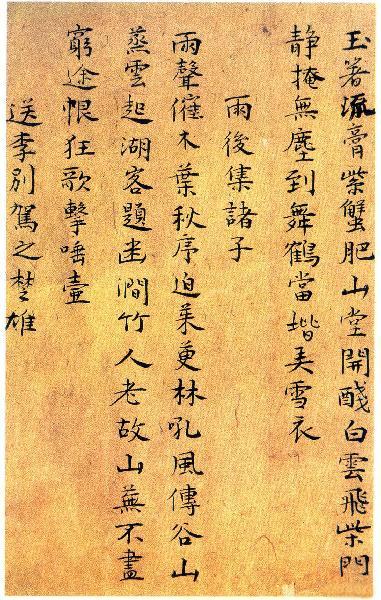 玉著流膏紫蟹肥山堂開醆白雲飛柴門
静掩無塵到舞鶴當堦雪衣
雨後集諸子
雨聲催木葉秋序迫茱萸林吼風傳谷山
蒸雲起湖客題幽澗竹人老故山蕪不盡
窮途恨狂歌擊唾壺
送李別駕之楚雄